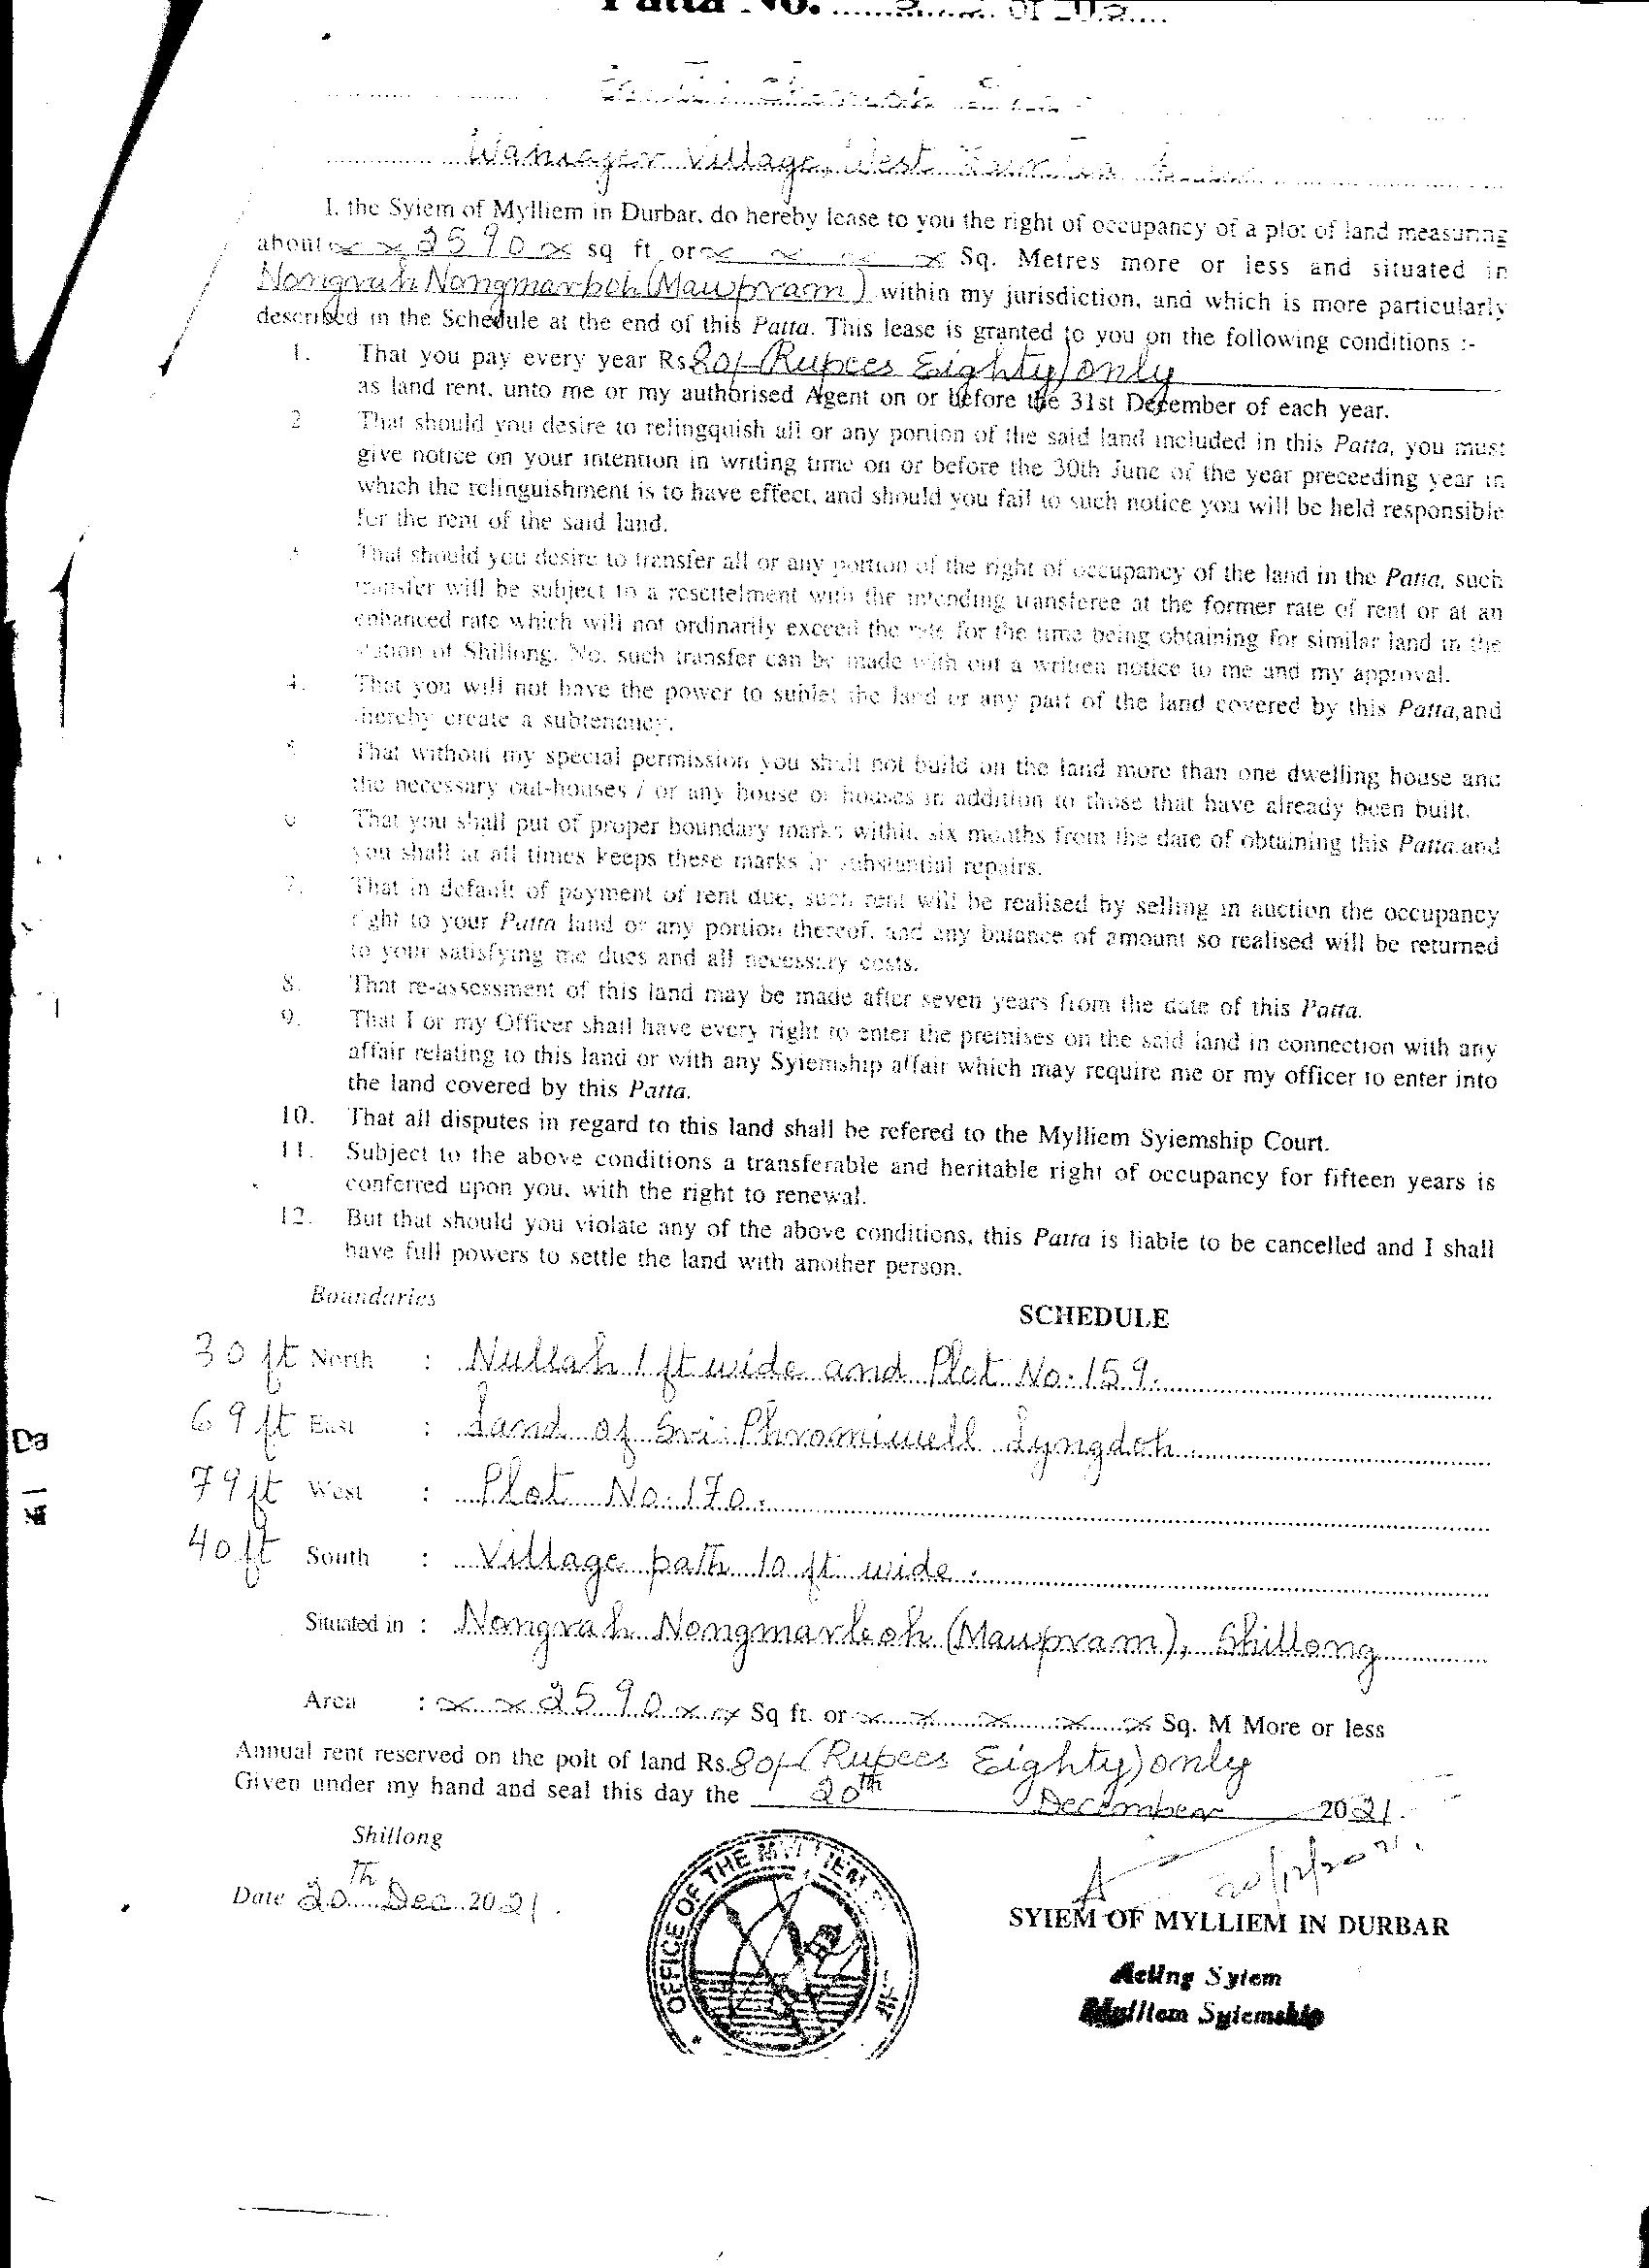 Patta No. of
Village, West
I, the Syiem of Mylliem in Durbar, do hereby lease to you the right of occupancy of a plot of land measuring
about x x 2590 x sq ft or x x x x Sq. Metres more or less and situated in
Nongrah Nongmarboh (Mawpram) within my jurisdiction, and which is more particularly
described in the Schedule at the end of this Patta. This lease is granted to you on the following conditions :-
1. That you pay every year Rs 80/- (Rupees Eighty) only
as land rent, unto me or my authorised Agent on or before the 31st December of each year.
2 That should you desire to relingquish all or any portion of the said land included in this Patta, you must
give notice on your intention in writing time on or before the 30th June of the year preceeding year in
which the relinguishment is to have effect, and should you fail to such notice you will be held responsible
for the rent of the said land.
That should you desire to transfer all or any portion of the right of occupancy of the land in the Patta, such
transfer will be subject to a resettelment with the intending transferee at the former rate of rent or at an
enhanced rate which will not ordinarily exceed the rate for the time being obtaining for similar land in the
station of Shillong. No. such transfer can be made with out a written notice to me and my approval.
4. That you will not have the power to sublet the land or any part of the land covered by this Patta,and
thereby create a subtenancy.
5 That without my special permission you shall not build on the land more than one dwelling house and
the necessary out-houses / or any house or houses in addition to those that have already been built.
6 That you shall put of proper boundary marks within six months from the date of obtaining this Patta.and
you shall at all times keeps these marks in substantial repairs.
7. That in default of payment of rent due, such rent will be realised by selling in auction the occupancy
right to your Patta land or any portion thereof, and any balance of amount so realised will be returned
to your satisfying me dues and all necessary costs.
8. That re-assessment of this land may be made after seven years from the date of this Patta.
9. That I or my Officer shall have every right to enter the premises on the said land in connection with any
affair relating to this land or with any Syiemship affair which may require me or my officer to enter into
the land covered by this Patta.
10. That all disputes in regard to this land shall be refered to the Mylliem Syiemship Court.
11. Subject to the above conditions a transferable and heritable right of occupancy for fifteen years is
conferred upon you, with the right to renewal.
12. But that should you violate any of the above conditions, this Patta is liable to be cancelled and I shall
have full powers to settle the land with another person.
Boundaries
SCHEDULE
30 ft North : Nullah 1 ft wide and Plot No: 159.
69 ft East : Land of Sri Phromiwell Lyngdoh.
79 ft West : Plot No: 170.
40 ft South : Village path 10 ft wide.
Situated in : Nongrah Nongmarboh (Mawpram), Shillong
Area : x x 2590 x x Sq ft. or x x x x x Sq. M More or less
Annual rent reserved on the polt of land Rs. 80/- (Rupees Eighty) only
Given under my hand and seal this day the 20th December 2021.
Shillong
Date 20th Dec 2021.
OFFICE OF THE
20/12/2021.
SYIEM OF MYLLIEM IN DURBAR
Acting Syiem
Mylliem Syiemship